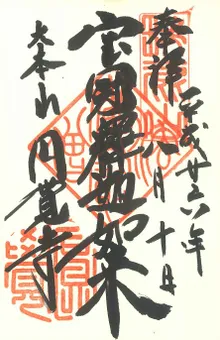 奉拝
平成廿六年
八月十日
宝冠釈迦如来
大本山
円覚寺